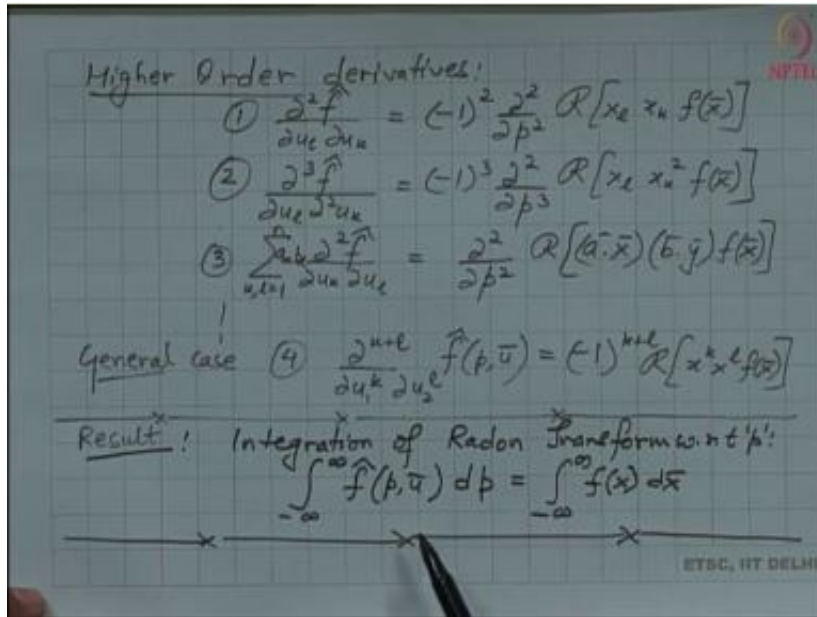 Higher Order derivatives:
NPTEL
① ∂²f̂/∂u_l ∂u_k = (-1)² ∂²/∂p² R[x_l x_k f(x̄)]
② ∂³f̂/∂u_l ∂²u_k = (-1)³ ∂²/∂p³ R[x_l x_k² f(x̄)]
③ Σ_{k,l=1}^{n} a b ∂²f̂/∂u_k ∂u_l = ∂²/∂p² R[(ā·x̄)(b̄·ȳ) f(x̄)]
General case ④ ∂^{k+l}/∂u₁^k ∂u₂^l f̂(p,ū) = (-1)^{k+l} R[x^k x^l f(x̄)]
Result: Integration of Radon Transform w.r.t 'p':
∫_{-∞}^{∞} f̂(p,ū) dp = ∫_{-∞}^{∞} f(x) dx̄
ETSC, IIT DELHI